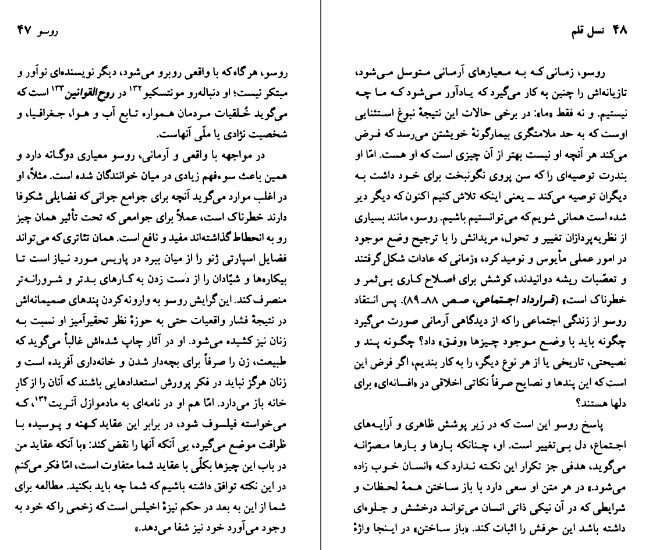 روسو ۴۷
روسو، هرگاه که با واقعی روبرو می‌شود، دیگر نویسنده‌ای نوآور و
مبتکر نیست؛ او دنباله‌رو مونتسکیو۱۳۲ در روح‌القوانین۱۳۳ است که
می‌گوید خُلقیات مردمان همواره تابع آب و هوا، جغرافیا، و
شخصیت نژادی یا ملّی آنهاست.
در مواجهه با واقعی و آرمانی، روسو معیاری دوگانه دارد و
همین باعث سوءفهم زیادی در میان خوانندگان شده است. مثلاً، او
در اغلب موارد می‌گوید آنچه برای جوامع جوانی که فضایلی شکوفا
دارند خطرناک است، عملاً برای جوامعی که تحت تأثیر همان چیز
رو به انحطاط گذاشته‌اند مفید و نافع است. همان تئاتری که می‌تواند
فضایل اسپارتی ژنو را از میان ببرد در پاریس مورد نیاز است تا
بیکاره‌ها و شیّادان را از دست زدن به کارهای بدتر و شرورانه‌تر
منصرف کند. این گرایش روسو به وارونه کردن پندهای صمیمانه‌اش
در نتیجهٔ فشار واقعیات حتی به حوزهٔ نظر تحقیرآمیز او نسبت به
زنان نیز کشیده می‌شود. او در آثار چاپ شده‌اش غالباً می‌گوید که
طبیعت، زن را صرفاً برای بچه‌دار شدن و خانه‌داری آفریده است و
زنان هرگز نباید در فکر پرورش استعدادهایی باشند که آنان را از کارِ
خانه باز می‌دارد. امّا هم او در نامه‌ای به مادموازل آنریت۱۳۴، که
می‌خواسته فیلسوف شود، در برابر این عقاید کهنه و پوسیده با
ظرافت موضع می‌گیرد، بی آنکه آنها را نقض کند: «با آنکه عقاید من
در باب این چیزها بکلّی با عقاید شما متفاوت است، امّا فکر می‌کنم
در این نکته توافق داشته باشیم که شما چه باید بکنید. مطالعه برای
شما از این به بعد در حکم نیزهٔ اخیلس است که زخمی را که خود به
وجود می‌آورد خود نیز شفا می‌دهد.»
۴۸ نسل قلم
روسو، زمانی که به معیارهای آرمانی متوسل می‌شود،
تازیانه‌اش را چنین به کار می‌گیرد که یادآور می‌شود که ما چه
نیستیم. و نه فقط «ما»: در برخی حالات این نتیجهٔ نبوغ استثنایی
اوست که به حد ملامتگری بیمارگونهٔ خویشتن می‌رسد که فرض
می‌کند هر آنچه او نیست بهتر از آن چیزی است که او هست. امّا او
بندرت توصیه‌ای را که سن پروی نگونبخت برای خود داشت به
دیگران توصیه می‌کند ــ یعنی اینکه تلاش کنیم اکنون که دیگر دیر
شده است همانی شویم که می‌توانستیم باشیم. روسو، مانند بسیاری
از نظریه‌پردازان تغییر و تحول، مریدانش را با ترجیح وضع موجود
در امور عملی مأیوس و نومید کرد، «زمانی که عادات شکل گرفتند
و تعصّبات ریشه دوانیدند، کوشش برای اصلاح کاری بی‌ثمر و
خطرناک است» (قرارداد اجتماعی، صص ۸۸ـ۸۹). پس انتقاد
روسو از زندگی اجتماعی را که از دیدگاهی آرمانی صورت می‌گیرد
چگونه باید با وضع موجود چیزها «وفق» داد؟ چگونه پند و
نصیحتی، تاریخی یا از هر نوع دیگر، را به کار بندیم، اگر فرض این
است که این پندها و نصایح صرفاً نکاتی اخلاقی در «افسانه‌ای» برای
دلها هستند؟
پاسخ روسو این است که در زیر پوشش ظاهری و آرایه‌های
اجتماع، دل بی‌تغییر است. او، چنانکه بارها و بارها مصرّانه
می‌گوید، هدفی جز تکرار این نکته ندارد که «انسان خوب زاده
می‌شود.» در هر متن او سعی دارد با باز ساختن همهٔ لحظات و
شرایطی که در آن نیکی ذاتی انسان می‌تواند درخشش و جلوه‌ای
داشته باشد این حرفش را اثبات کند. «باز ساختن» در اینجا واژهٔ